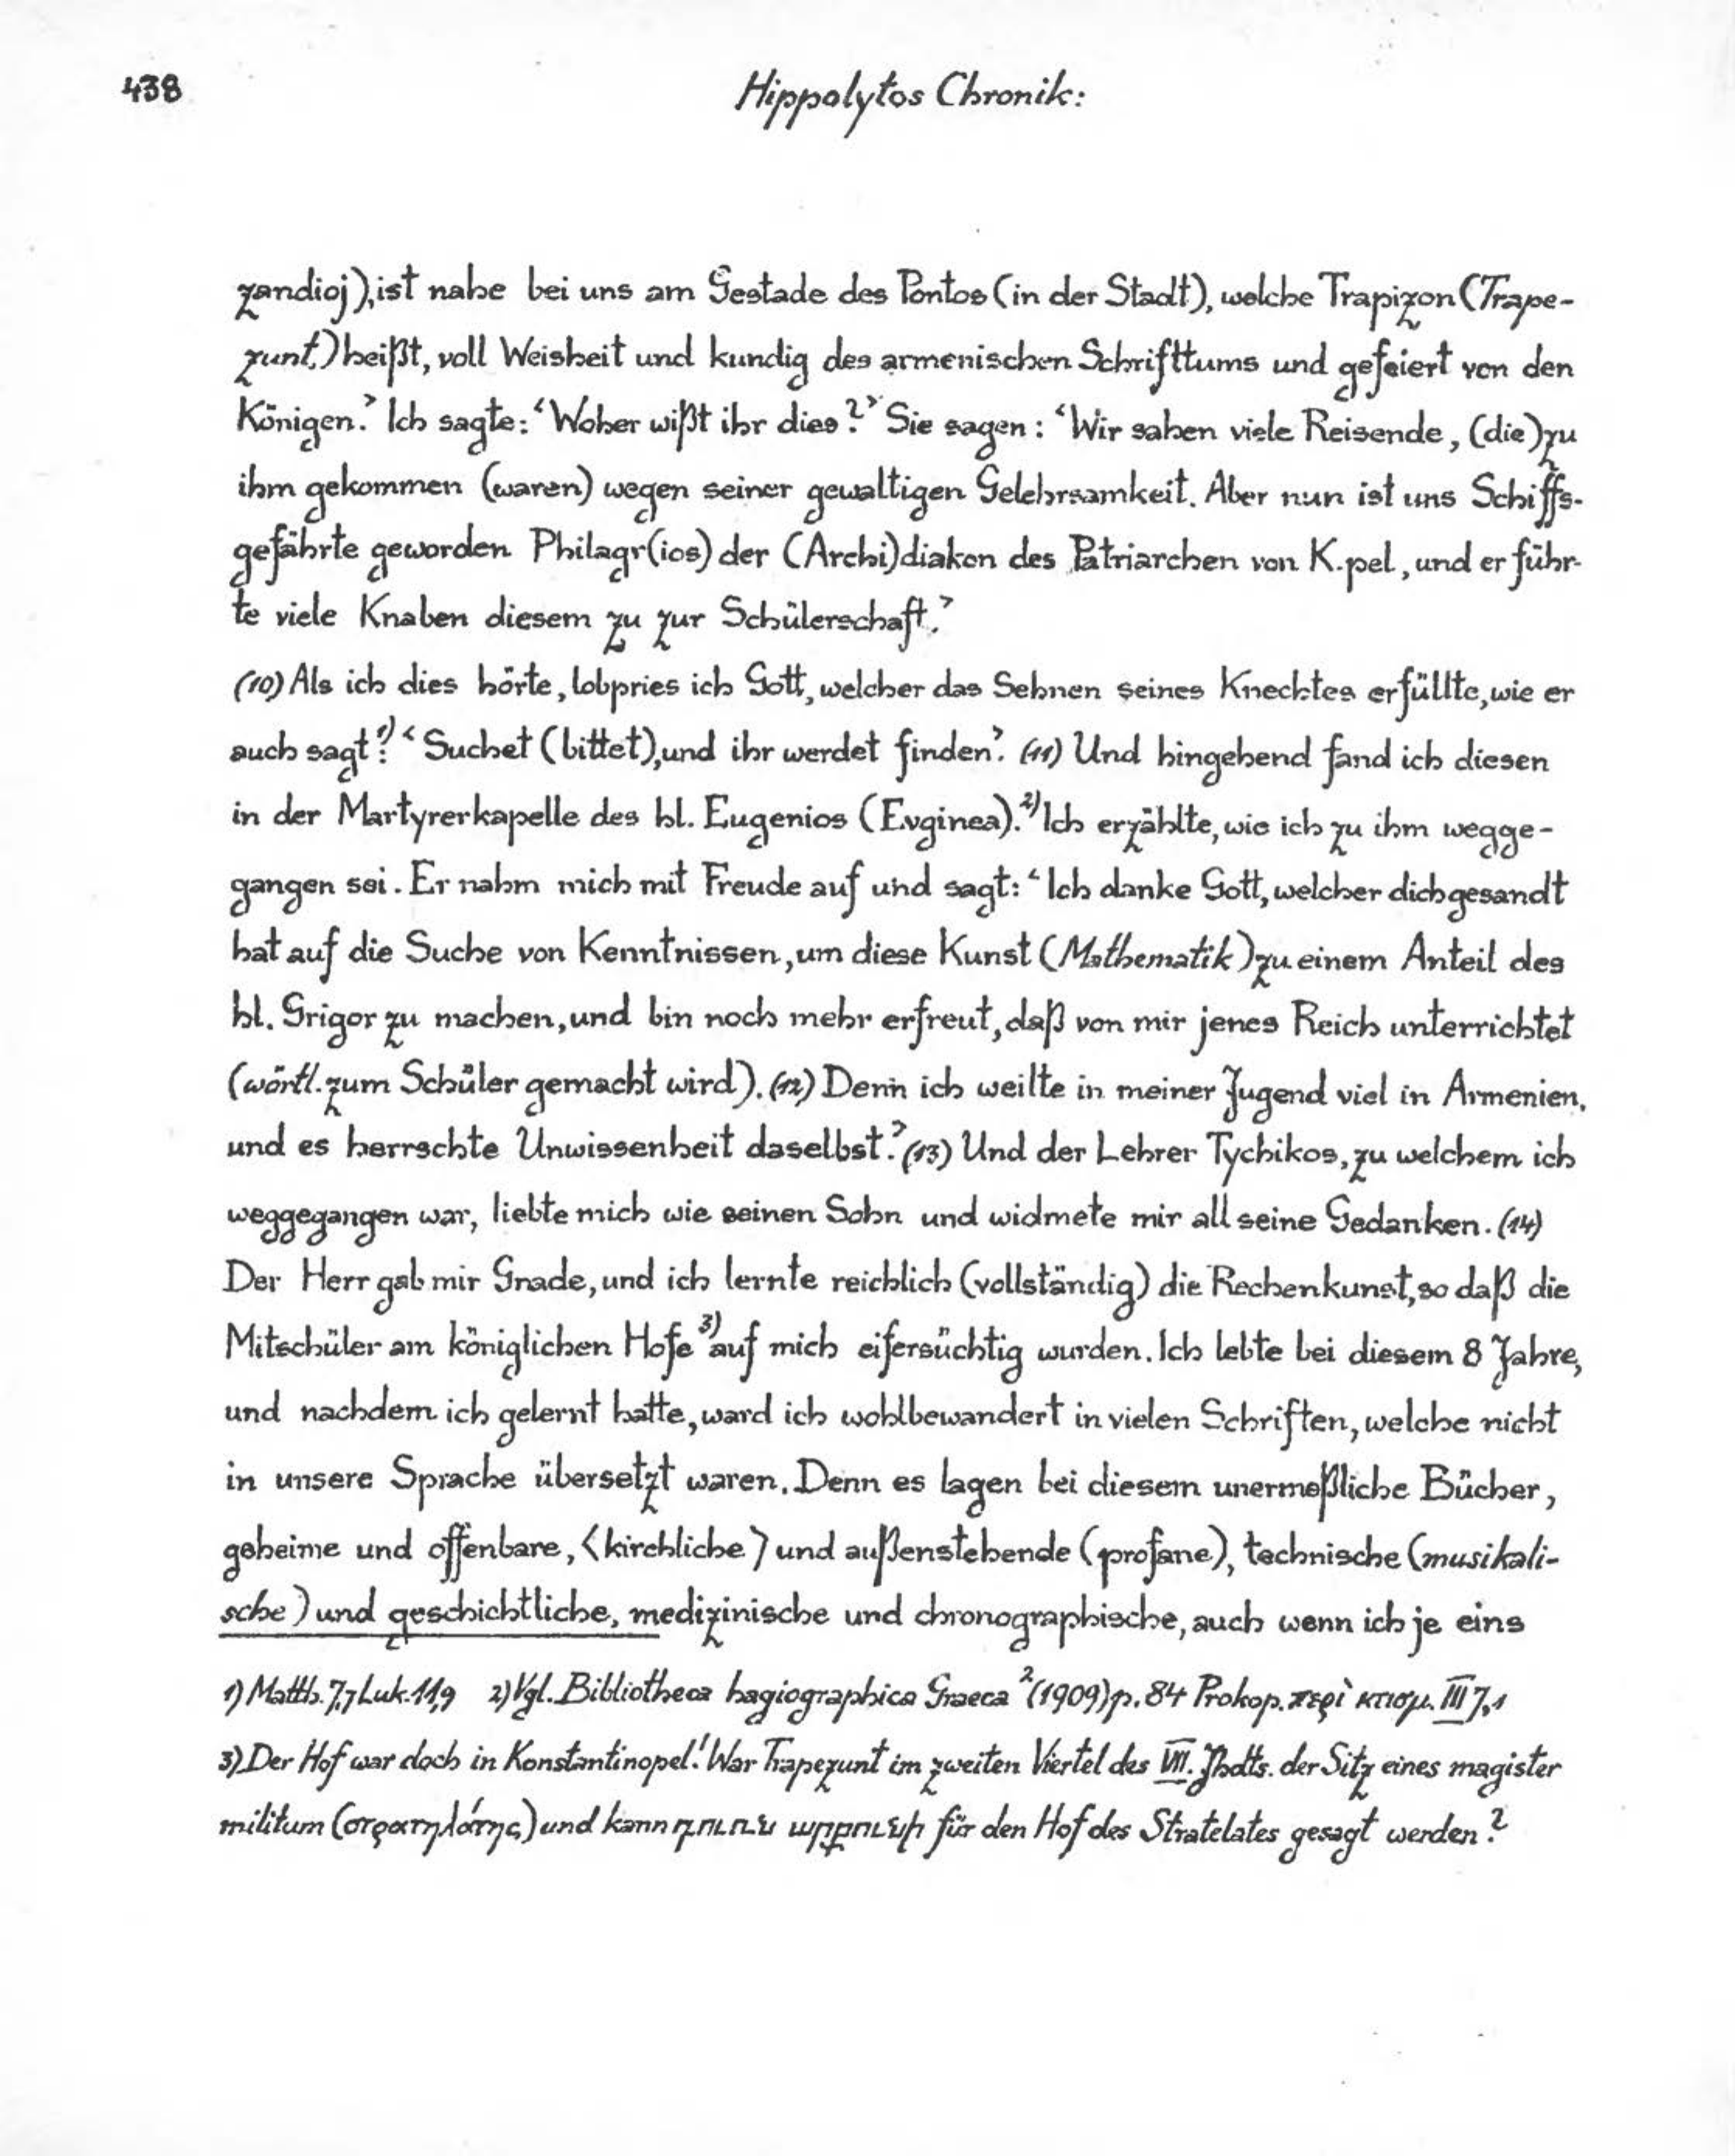 438
Hippolytos Chronik:
zandioj), ist nahe bei uns am Gestade des Pontos (in der Stadt), welche Trapizon (Trape-
zunt) heißt, voll Weisheit und kundig des armenischen Schrifttums und gefeiert von den
Königen.› Ich sagte: ‹Woher wißt ihr dies?› Sie sagen: ‹Wir sahen viele Reisende, (die) zu
ihm gekommen (waren) wegen seiner gewaltigen Gelehrsamkeit. Aber nun ist uns Schiffs-
gefährte geworden Philagr(ios) der (Archi)diakon des Patriarchen von K.pel, und er führ-
te viele Knaben diesem zu zur Schülerschaft.›
(10) Als ich dies hörte, lobpries ich Gott, welcher das Sehnen seines Knechtes erfüllte, wie er
auch sagt:¹⁾ ‹Suchet (bittet), und ihr werdet finden›. (11) Und hingehend fand ich diesen
in der Martyrerkapelle des hl. Eugenios (Evginea).²⁾ Ich erzählte, wie ich zu ihm wegge-
gangen sei. Er nahm mich mit Freude auf und sagt: ‹Ich danke Gott, welcher dich gesandt
hat auf die Suche von Kenntnissen, um diese Kunst (Mathematik) zu einem Anteil des
hl. Grigor zu machen, und bin noch mehr erfreut, daß von mir jenes Reich unterrichtet
(wörtl. zum Schüler gemacht wird). (12) Denn ich weilte in meiner Jugend viel in Armenien,
und es herrschte Unwissenheit daselbst.› (13) Und der Lehrer Tychikos, zu welchem ich
weggegangen war, liebte mich wie seinen Sohn und widmete mir all seine Gedanken. (14)
Der Herr gab mir Gnade, und ich lernte reichlich (vollständig) die Rechenkunst, so daß die
Mitschüler am königlichen Hofe³⁾ auf mich eifersüchtig wurden. Ich lebte bei diesem 8 Jahre,
und nachdem ich gelernt hatte, ward ich wohlbewandert in vielen Schriften, welche nicht
in unsere Sprache übersetzt waren. Denn es lagen bei diesem unermeßliche Bücher,
geheime und offenbare, ‹kirchliche› und außenstehende (profane), technische (musikali-
sche) und geschichtliche, medizinische und chronographische, auch wenn ich je eins
1) Matth. 7,7 Luk. 11,9 2) Vgl. Bibliotheca hagiographica Graeca ²(1909) p. 84 Prokop. περὶ κτισμ. III 7,1
3) Der Hof war doch in Konstantinopel! War Trapezunt im zweiten Viertel des VII. Jhdts. der Sitz eines magister
militum (στρατηλάτης) und kann դուռն արքունի für den Hof des Stratelates gesagt werden?